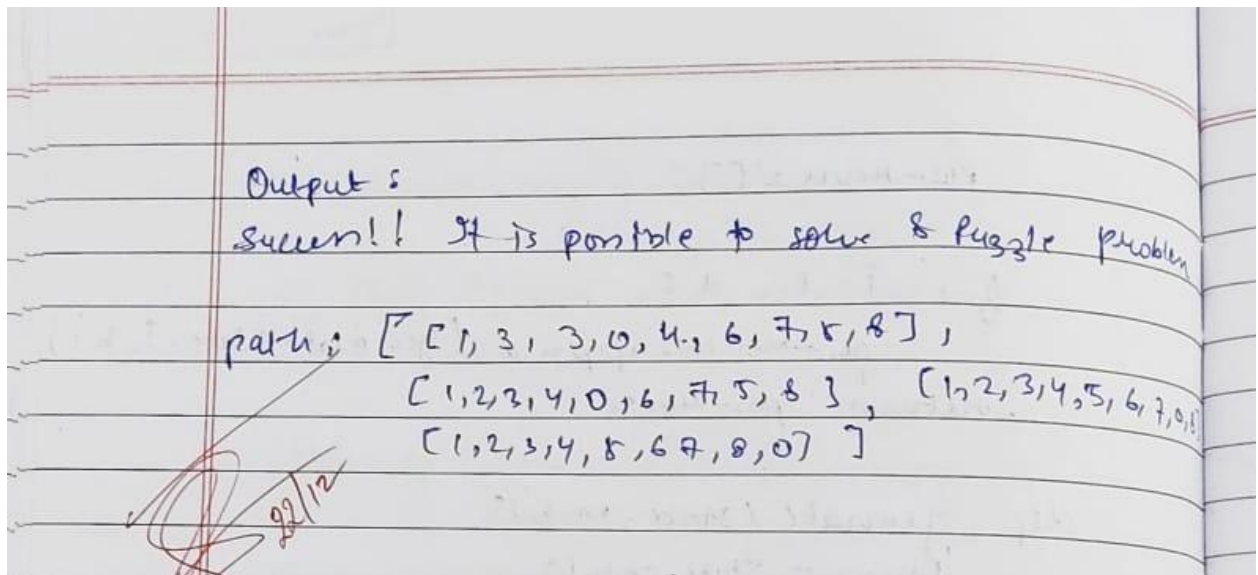 Output :
Success!! It is possible to solve 8 Puzzle problem
path : [ [1, 3, 3, 0, 4, 6, 7, 5, 8] ,
[1,2,3,4,0,6,7,5,8] , [1,2,3,4,5,6,7,0,8]
[1,2,3,4,5,6 7,8,0] ]
22/12